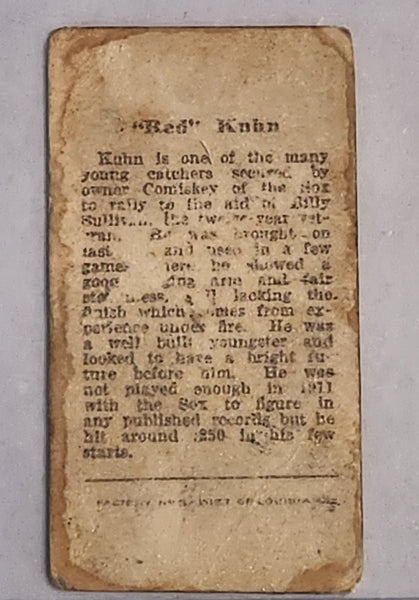 "Red" Kuhn
Kuhn is one of the many
young catchers secured by
owner Comiskey of the Sox
to rally to the aid of Billy
Sullivan, the twelve-year vet-
eran. He was brought on
last and used in a few
games here he showed a
good ing arm and fair
lacking the
finish which comes from ex-
perience under fire. He was
a well built youngster and
looked to have a bright fu-
ture before him. He was
not played enough in 1911
with the Sox to figure in
any published records but he
hit around .250 in his few
starts.
FACTORY DISTRICT OF LOUISIANA